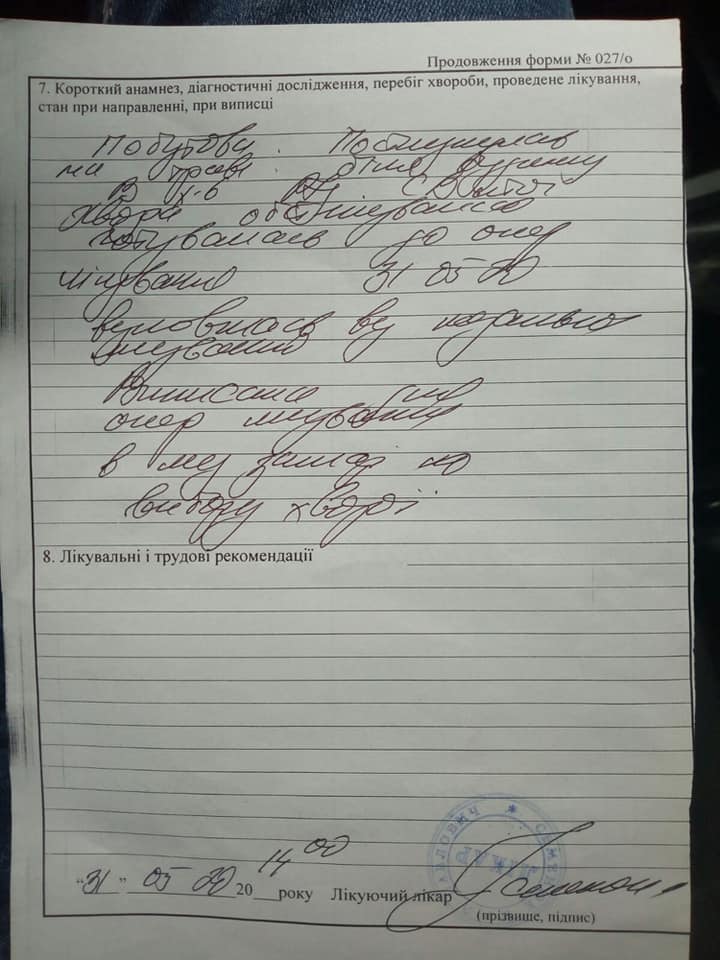 Продовження форми № 027/о
7. Короткий анамнез, діагностичні дослідження, перебіг хвороби, проведене лікування,
стан при направленні, при виписці
Побутову. Послизнулась
на траві біля будинку
В х-в
Хвора обстежувалась
готувалась до опер
лікування 31 05 20
відмовилась від подальшого
лікування
Виписана для
опер лікування
в му закладі по
вибору хворої
8. Лікувальні і трудові рекомендації
14 00
"31" 05 20 20 року Лікуючий лікар
(прізвище, підпис)